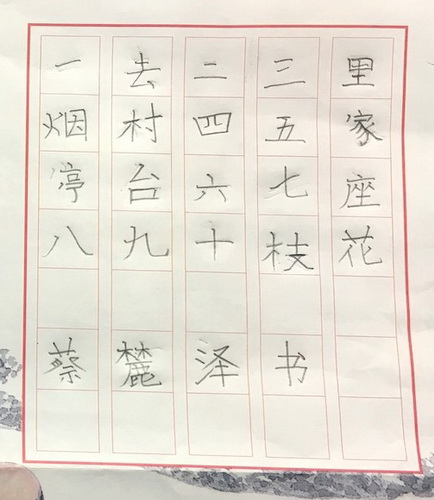 一去二三里
烟村四五家
渟台六七座
八九十枝花
蔡麓泽书